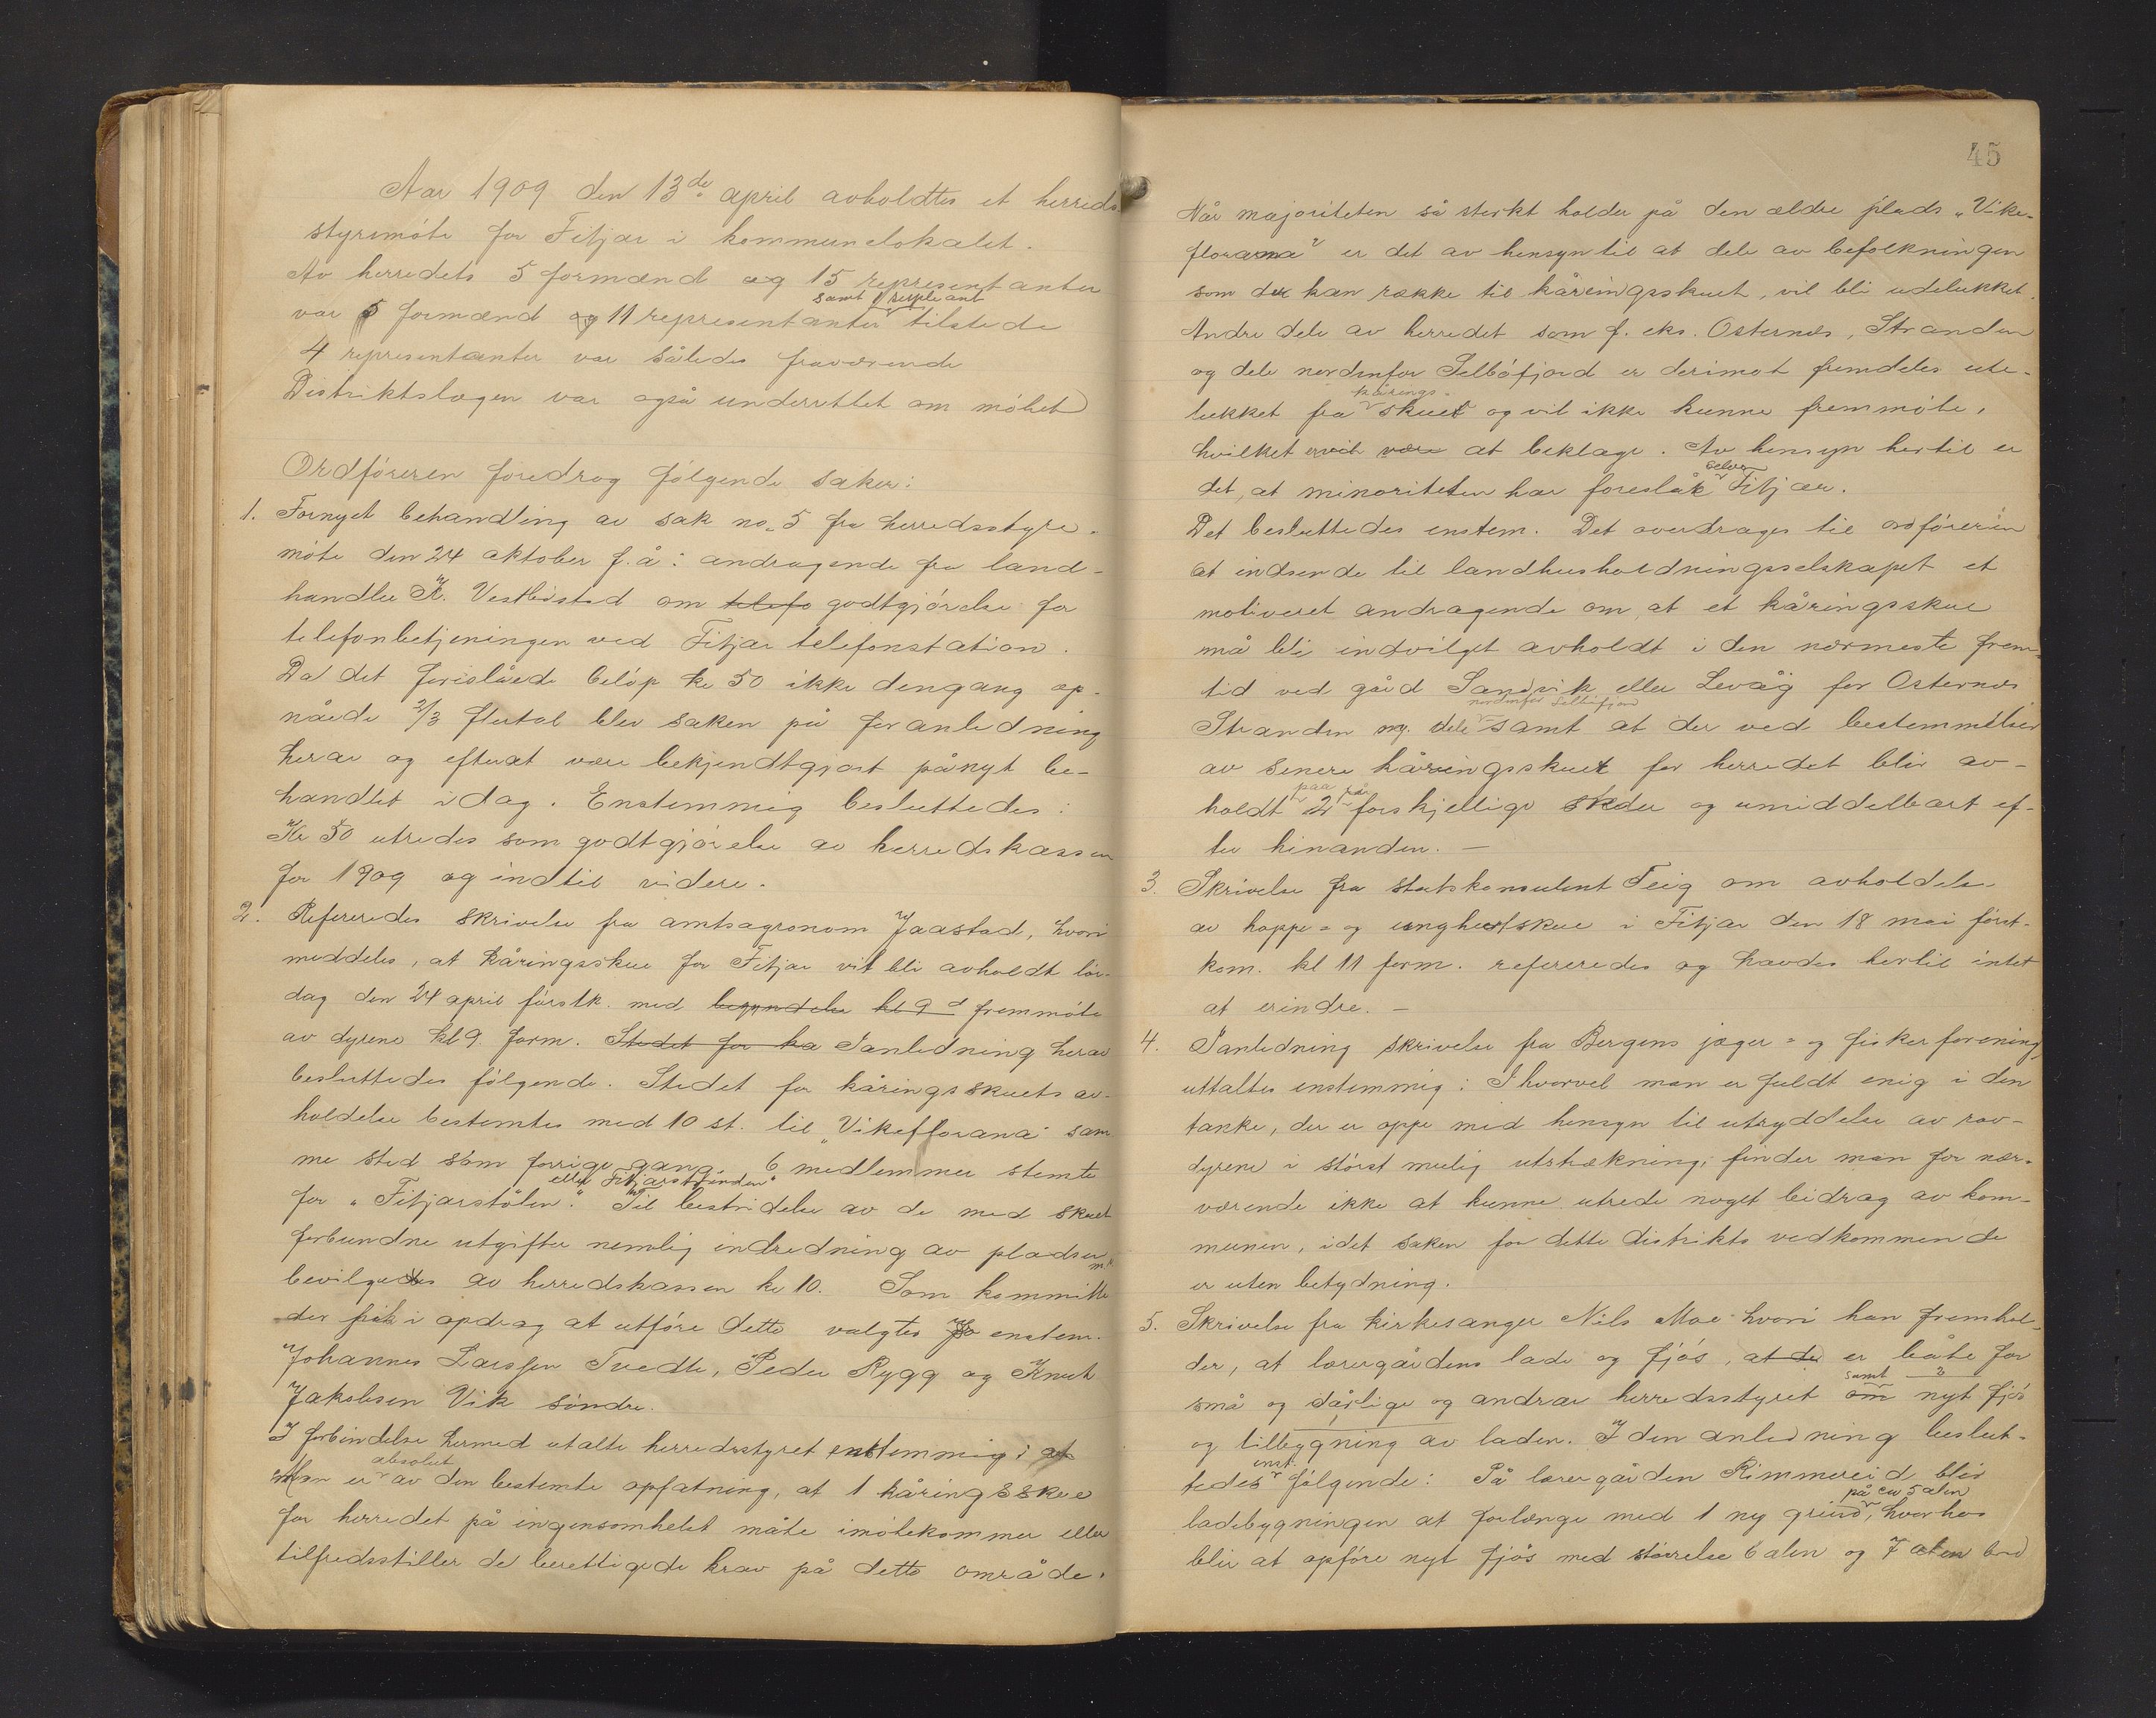 Aar 1909 den 13de april avholdtes et herreds-
styremøte for Fitjar i kommunelokalet.
Av herredets 5 formænd og 15 representanter
samt 1 supleant
var 5 formænd og 11 representanter tilstede
4 representanter var således fraværende
Distriktslægen var også underrettet om møtet
Ordføreren foredrog følgende saker:
1. Fornyet behandling av sak no. 5 fra herredsstyre-
møte den 24 oktober f.å: andragende fra land-
handler K. Vestbøstad om telefo godtgjørelse for
telefonbetjeningen ved Fitjar telefonstation.
Da det foreslåede beløp kr 50 ikke dengang op-
nåede 2/3 flertal blev saken på foranledning
herav og efterat være bekjendtgjort pånyt be-
handlet idag. Enstemmig besluttedes:
Kr 50 utredes som godtgjørelse av herredskassen
for 1909 og indtil videre.
2. Refereredes skrivelse fra amtsagronom Jaastad, hvori
meddeles, at kåringsskue for Fitjar vil bli avholdt lør-
dag den 24 april førstk. med begyndelse kl 9 fremmøte
av dyrene kl 9 form. Stedet for ka I anledning herav
besluttedes følgende. Stedet for kåringsskuets av-
holdelse bestemtes med 10 st. til „Vikefloraná" sam
me sted som forrige gang. 6 medlemmer stemte
eller Fitjarstranden"
for „Fitjarstølen." Til bestridelse av de med skuet
forbundne utgifter nemlig indredning av pladsen m.v.
bevilgedes av herredskassen kr 10. Som kommitte
der fik i opdrag at utføre dette valgtes Jo enstem.
Johannes Larssen Tvedte, Peder Rygg og Knut
Jakobsen Vik søndre.
I forbindelse hermed utalte herredsstyret enstemmig: at
absolut
Man er av den bestemte opfatning, at 1 kåringsskue
for herredet på ingensomhelst måte imøtekommer eller
tilfredsstiller de berettigede krav på dette område.
45
Når majoriteten så sterkt holder på den ældre plads „Vike-
florarna" er det av hensyn til at dele av befolkningen
som der kan række til kåringsskuet, vil bli udelukket.
Andre dele av herredet som f. eks. Osternes, Stranden
og dele nordenfor Selbøfjord er derimot fremdeles ute-
kårings-
lukket fra skuet og vil ikke kunne fremmøte,
hvilket er vil være at beklage. Av hensyn hertil er
selve
det, at minoriteten har foreslåt Fitjar.
Det besluttedes enstem. Det overdrages til ordføreren
at indsende til landhusholdningsselskapet et
motiveret andragende om, at et kåringsskue
må bli indvilget avholdt i den nærmeste frem-
tid ved gård Sandvik eller Levåg for Osternes
nordenfor Selbøfjord
Stranden og dele samt at der ved bestemmelser
av senere kåringsskuer for herredet blir av-
paa
holdt 2 forskjellige steder og umiddelbart ef-
ter hinanden. —
3. Skrivelse fra statskonsulent Teig om avholdelse
av hoppe- og unghestskue i Fitjar den 18 mai først-
kom. kl 11 form. refereredes og havdes hertil intet
at erindre. —
4. I anledning skrivelse fra Bergens jæger- og fisker forening
uttaltes enstemmig: Ihvorvel man er fuldt enig i den
tanke, der er oppe med hensyn til utryddelse av rov-
dyrene i størst mulig utstrækning, finder man for nær-
værende ikke at kunne utrede noget bidrag av kom-
munen, idet saken for dette distrikts vedkommende
er uten betydning.
5. Skrivelse fra kirkesanger Nils Moe hvori han fremhol-
der, at lærergårdens lade og fjøs, at de er både for
samt
små og dårlige og andrar herredsstyret om nyt fjøs
og tilbygning av laden. I den anledning beslut-
enst.
tedes følgende: På lærergården Rimmereid blir
på ca 5 alen
ladebygningen at forlænge med 1 ny grind, hvorhos
blir at opføre nyt fjøs med størrelse 6 alen og 7 alen bred